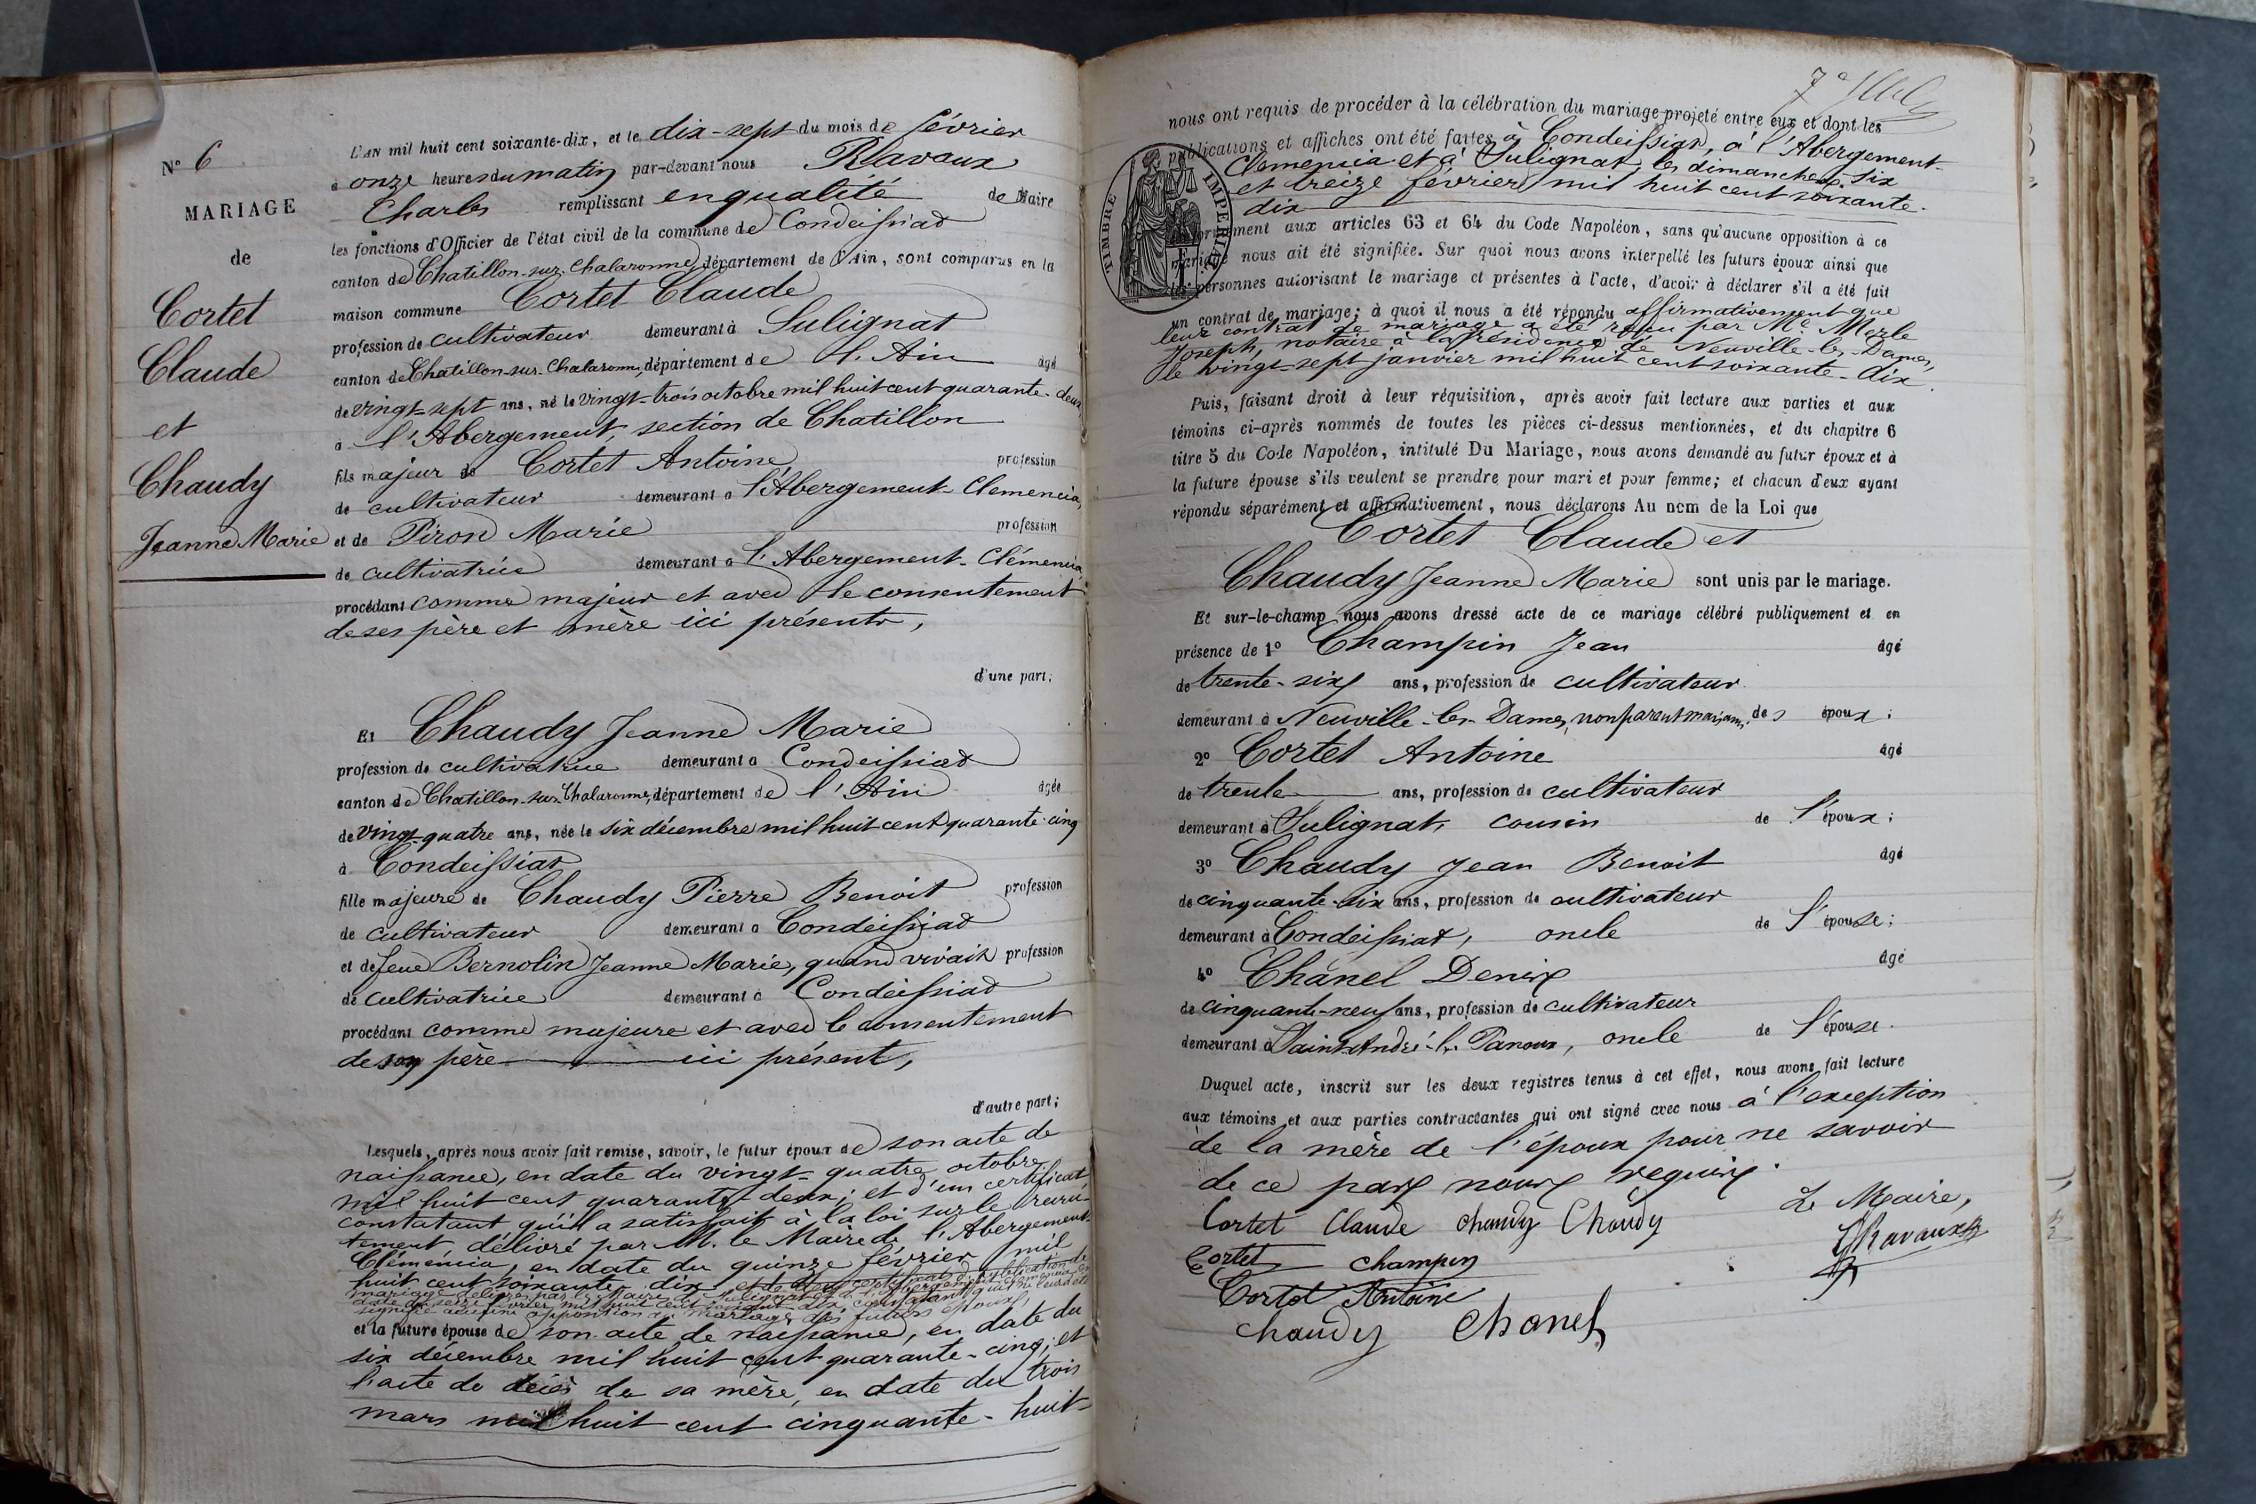 N° 6
MARIAGE
de
Cortet
Claude
et
Chaudy
Jeanne Marie
L'AN mil huit cent soixante-dix, et le dix-sept du mois de février
à onze heures du matin par-devant nous Ravaux
Charles remplissant en qualité de Maire
les fonctions d'Officier de l'état civil de la commune de Condeissiat
canton de Chatillon-sur-Chalaronne, département de l'Ain, sont comparus en la
maison commune Cortet Claude
profession de cultivateur demeurant à Sulignat
canton de Chatillon-sur-Chalaronne, département de l'Ain âgé
de vingt-sept ans, né le vingt-trois octobre mil huit cent quarante-deux,
à l'Abergement, section de Chatillon
fils majeur de Cortet Antoine profession
de cultivateur demeurant à l'Abergement-Clemencia,
et de Piron Marie profession
de cultivatrice demeurant à l'Abergement-Clémencia,
procédant comme majeur et avec le consentement
de ses père et mère ici présents,
d'une part;
Et Chaudy Jeanne Marie
profession de cultivatrice demeurant à Condeissiat
canton de Chatillon-sur-Chalaronne, département de l'Ain âgée
de vingt-quatre ans, née le six décembre mil huit cent quarante-cinq
à Condeissiat
fille majeure de Chaudy Pierre Benoit profession
de cultivateur demeurant à Condeissiat
et de feue Bernolin Jeanne Marie, quand vivait profession
de cultivatrice demeurant à Condeissiat
procédant comme majeure et avec le consentement
de son père ici présent,
d'autre part;
Lesquels, après nous avoir fait remise, savoir, le futur époux de son acte de
naissance, en date du vingt-quatre octobre
mil huit cent quarante-deux; et d'un certificat
constatant qu'il a satisfait à la loi sur le recru-
tement, délivré par M. le Maire de l'Abergement-
Clémencia, en date du quinze février mil
huit cent soixante-dix et de deux certificats de publication de
mariage délivrés par le Maire de Sulignat et de l'Abergement-Clemencia en
date du seize février mil huit cent soixante dix, constatant qu'il ne leur a été
signifié aucune opposition au mariage des futurs époux,
et la future épouse de son acte de naissance, en date du
six décembre mil huit cent quarante-cinq; et
l'acte de décès de sa mère, en date du trois
mars mil huit cent cinquante-huit
7e
nous ont requis de procéder à la célébration du mariage projeté entre eux et dont les
publications et affiches ont été faites à Condeissiat, à l'Abergement-
Clemencia et à Sulignat, les dimanches six
et treize février mil huit cent soixante-
dix
TIMBRE IMPERIAL
conformément aux articles 63 et 64 du Code Napoléon, sans qu'aucune opposition à ce
mariage nous ait été signifiée. Sur quoi nous avons interpellé les futurs époux ainsi que
les personnes autorisant le mariage et présentes à l'acte, d'avoir à déclarer s'il a été fait
un contrat de mariage; à quoi il nous a été répondu affirmativement que
leur contrat de mariage a été reçu par Me Merle
Joseph, notaire à la résidence de Neuville-les-Dames,
le vingt-sept janvier mil huit cent soixante-dix.
Puis, faisant droit à leur réquisition, après avoir fait lecture aux parties et aux
témoins ci-après nommés de toutes les pièces ci-dessus mentionnées, et du chapitre 6
titre 5 du Code Napoléon, intitulé Du Mariage, nous avons demandé au futur époux et à
la future épouse s'ils veulent se prendre pour mari et pour femme; et chacun d'eux ayant
répondu séparément et affirmativement, nous déclarons Au nom de la Loi que
Cortet Claude et
Chaudy Jeanne Marie sont unis par le mariage.
Et sur-le-champ nous avons dressé acte de ce mariage célébré publiquement et en
présence de 1° Champin Jean âgé
de trente-six ans, profession de cultivateur
demeurant à Neuville-les-Dames, non parent mais ami, des époux;
2° Cortet Antoine âgé
de trente ans, profession de cultivateur
demeurant à Sulignat, cousin de l'époux;
3° Chaudy Jean Benoit âgé
de cinquante-six ans, profession de cultivateur
demeurant à Condeissiat, oncle de l'épouse;
4° Chanel Denix âgé
de cinquante-neuf ans, profession de cultivateur
demeurant à Saint André-le-Panoux, oncle de l'épouse.
Duquel acte, inscrit sur les deux registres tenus à cet effet, nous avons fait lecture
aux témoins et aux parties contractantes qui ont signé avec nous à l'exception
de la mère de l'époux pour ne savoir
de ce par nous requise.
Cortet Claude chaudy Chaudy Le Maire,
Cortet champin Ravaux
Cortet Antoine
chaudy Chanel